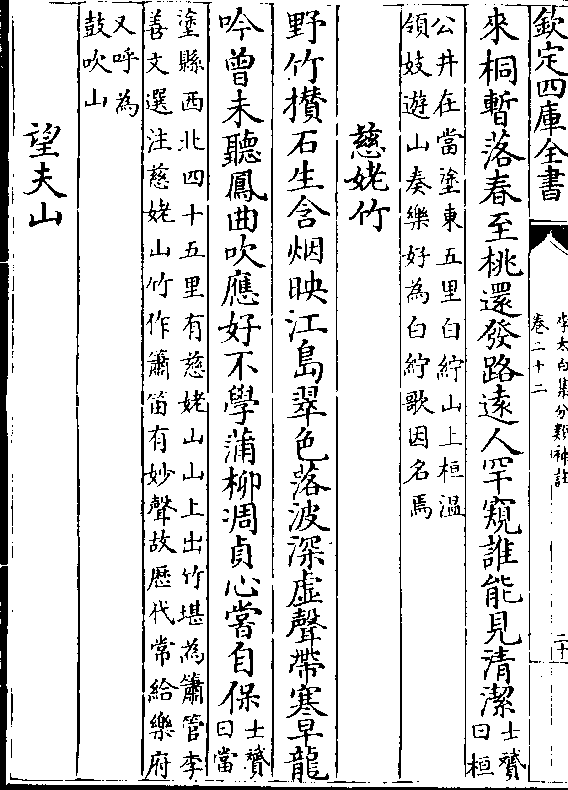 欽定四庫全書
李太白集分類補註
卷二十二
二十
來桐暫落春至桃還發路遠人罕窺誰能見清潔士贇
曰桓
公井在當塗東五里白紵山上桓溫
領妓遊山奏樂好為白紵歌因名焉
慈姥竹
野竹攅石生含烟映江島翠色落波深虛聲帶寒早龍
吟曾未聽鳳曲吹應好不學蒲柳凋貞心嘗自保士贇
曰當
塗縣西北四十五里有慈姥山山上出竹堪為簫管李
善文選注慈姥山竹作簫笛有妙聲故歴代常給樂府
又呼為
鼓吹山
望夫山